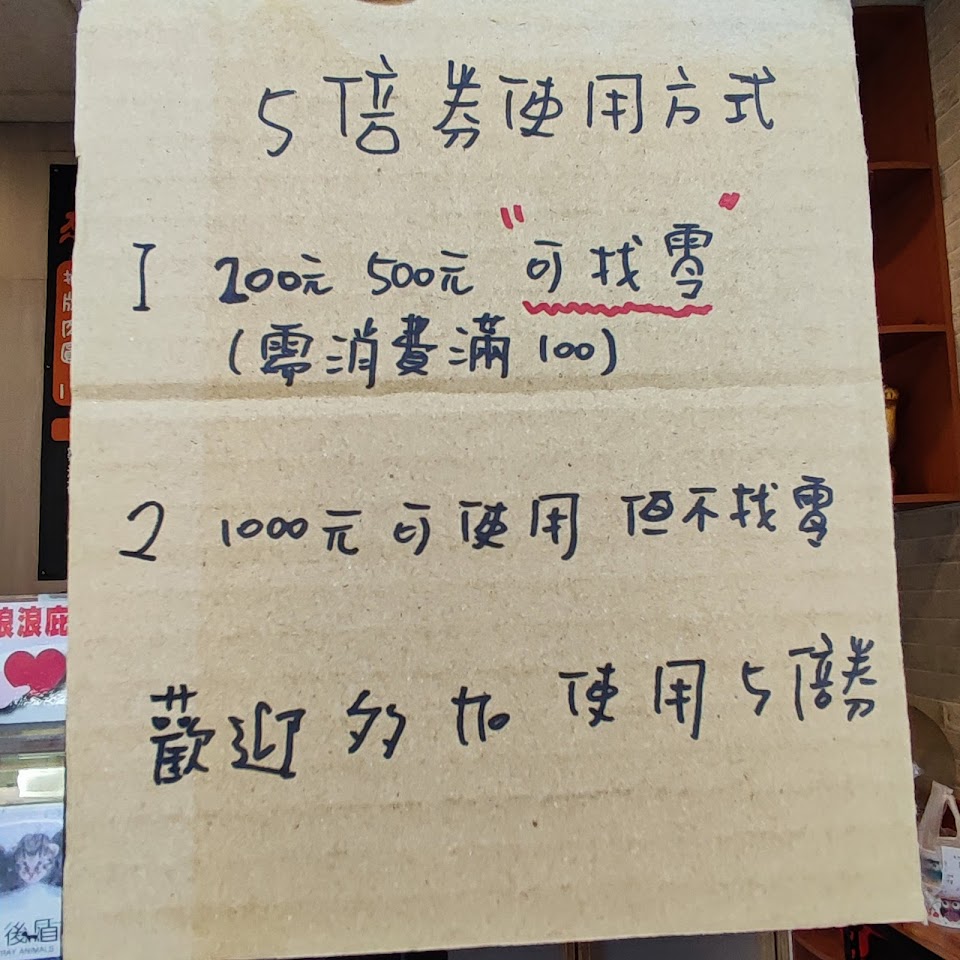 5倍券使用方式
1 200元 500元 "可找零"
(需消費滿100)
2 1000元可使用 但不找零
歡迎多加使用5倍券
浪浪庇
後盾
RAY ANIMALS